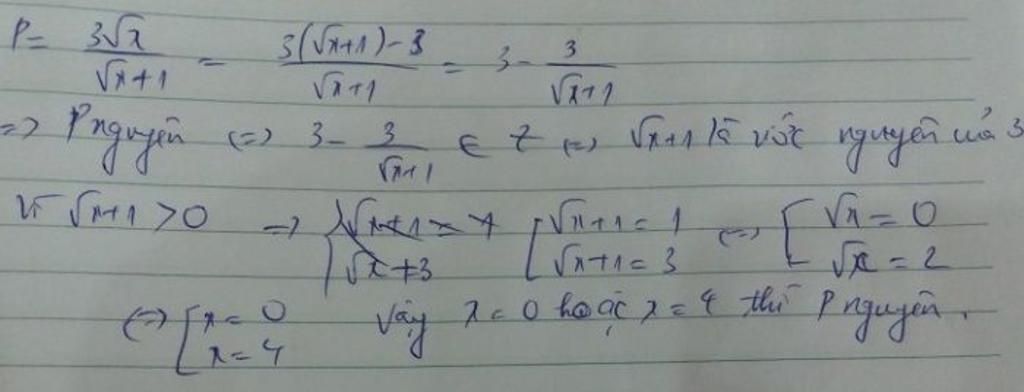 P = 3√x / √x+1 = 3(√x+1) - 3 / √x+1 = 3 - 3 / √x+1
=> P nguyên <=> 3 - 3 / √x+1 ∈ Z <=> √x+1 là ước nguyên của 3
Vì √x+1 > 0 => [√x+1 = 1 <=> [√x = 0
√x+3 √x+1 = 3 √x = 2
<=> [x = 0 Vậy x = 0 hoặc x = 4 thì P nguyên.
x = 4